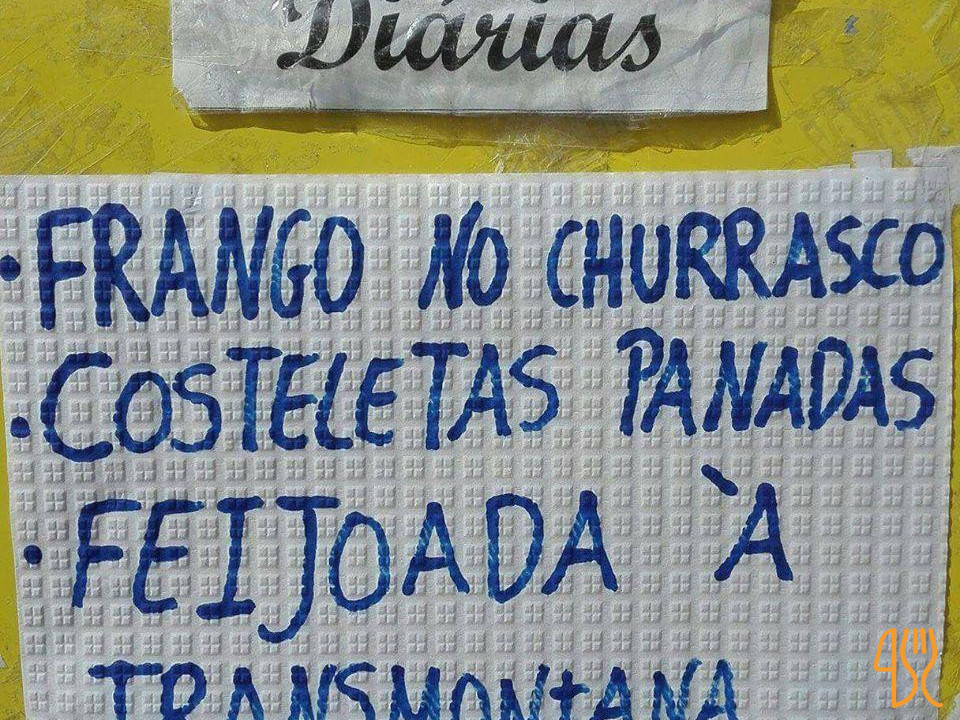 Diárias
• FRANGO NO CHURRASCO
• COSTELETAS PANADAS
• FEIJOADA À
TRANSMONTANA